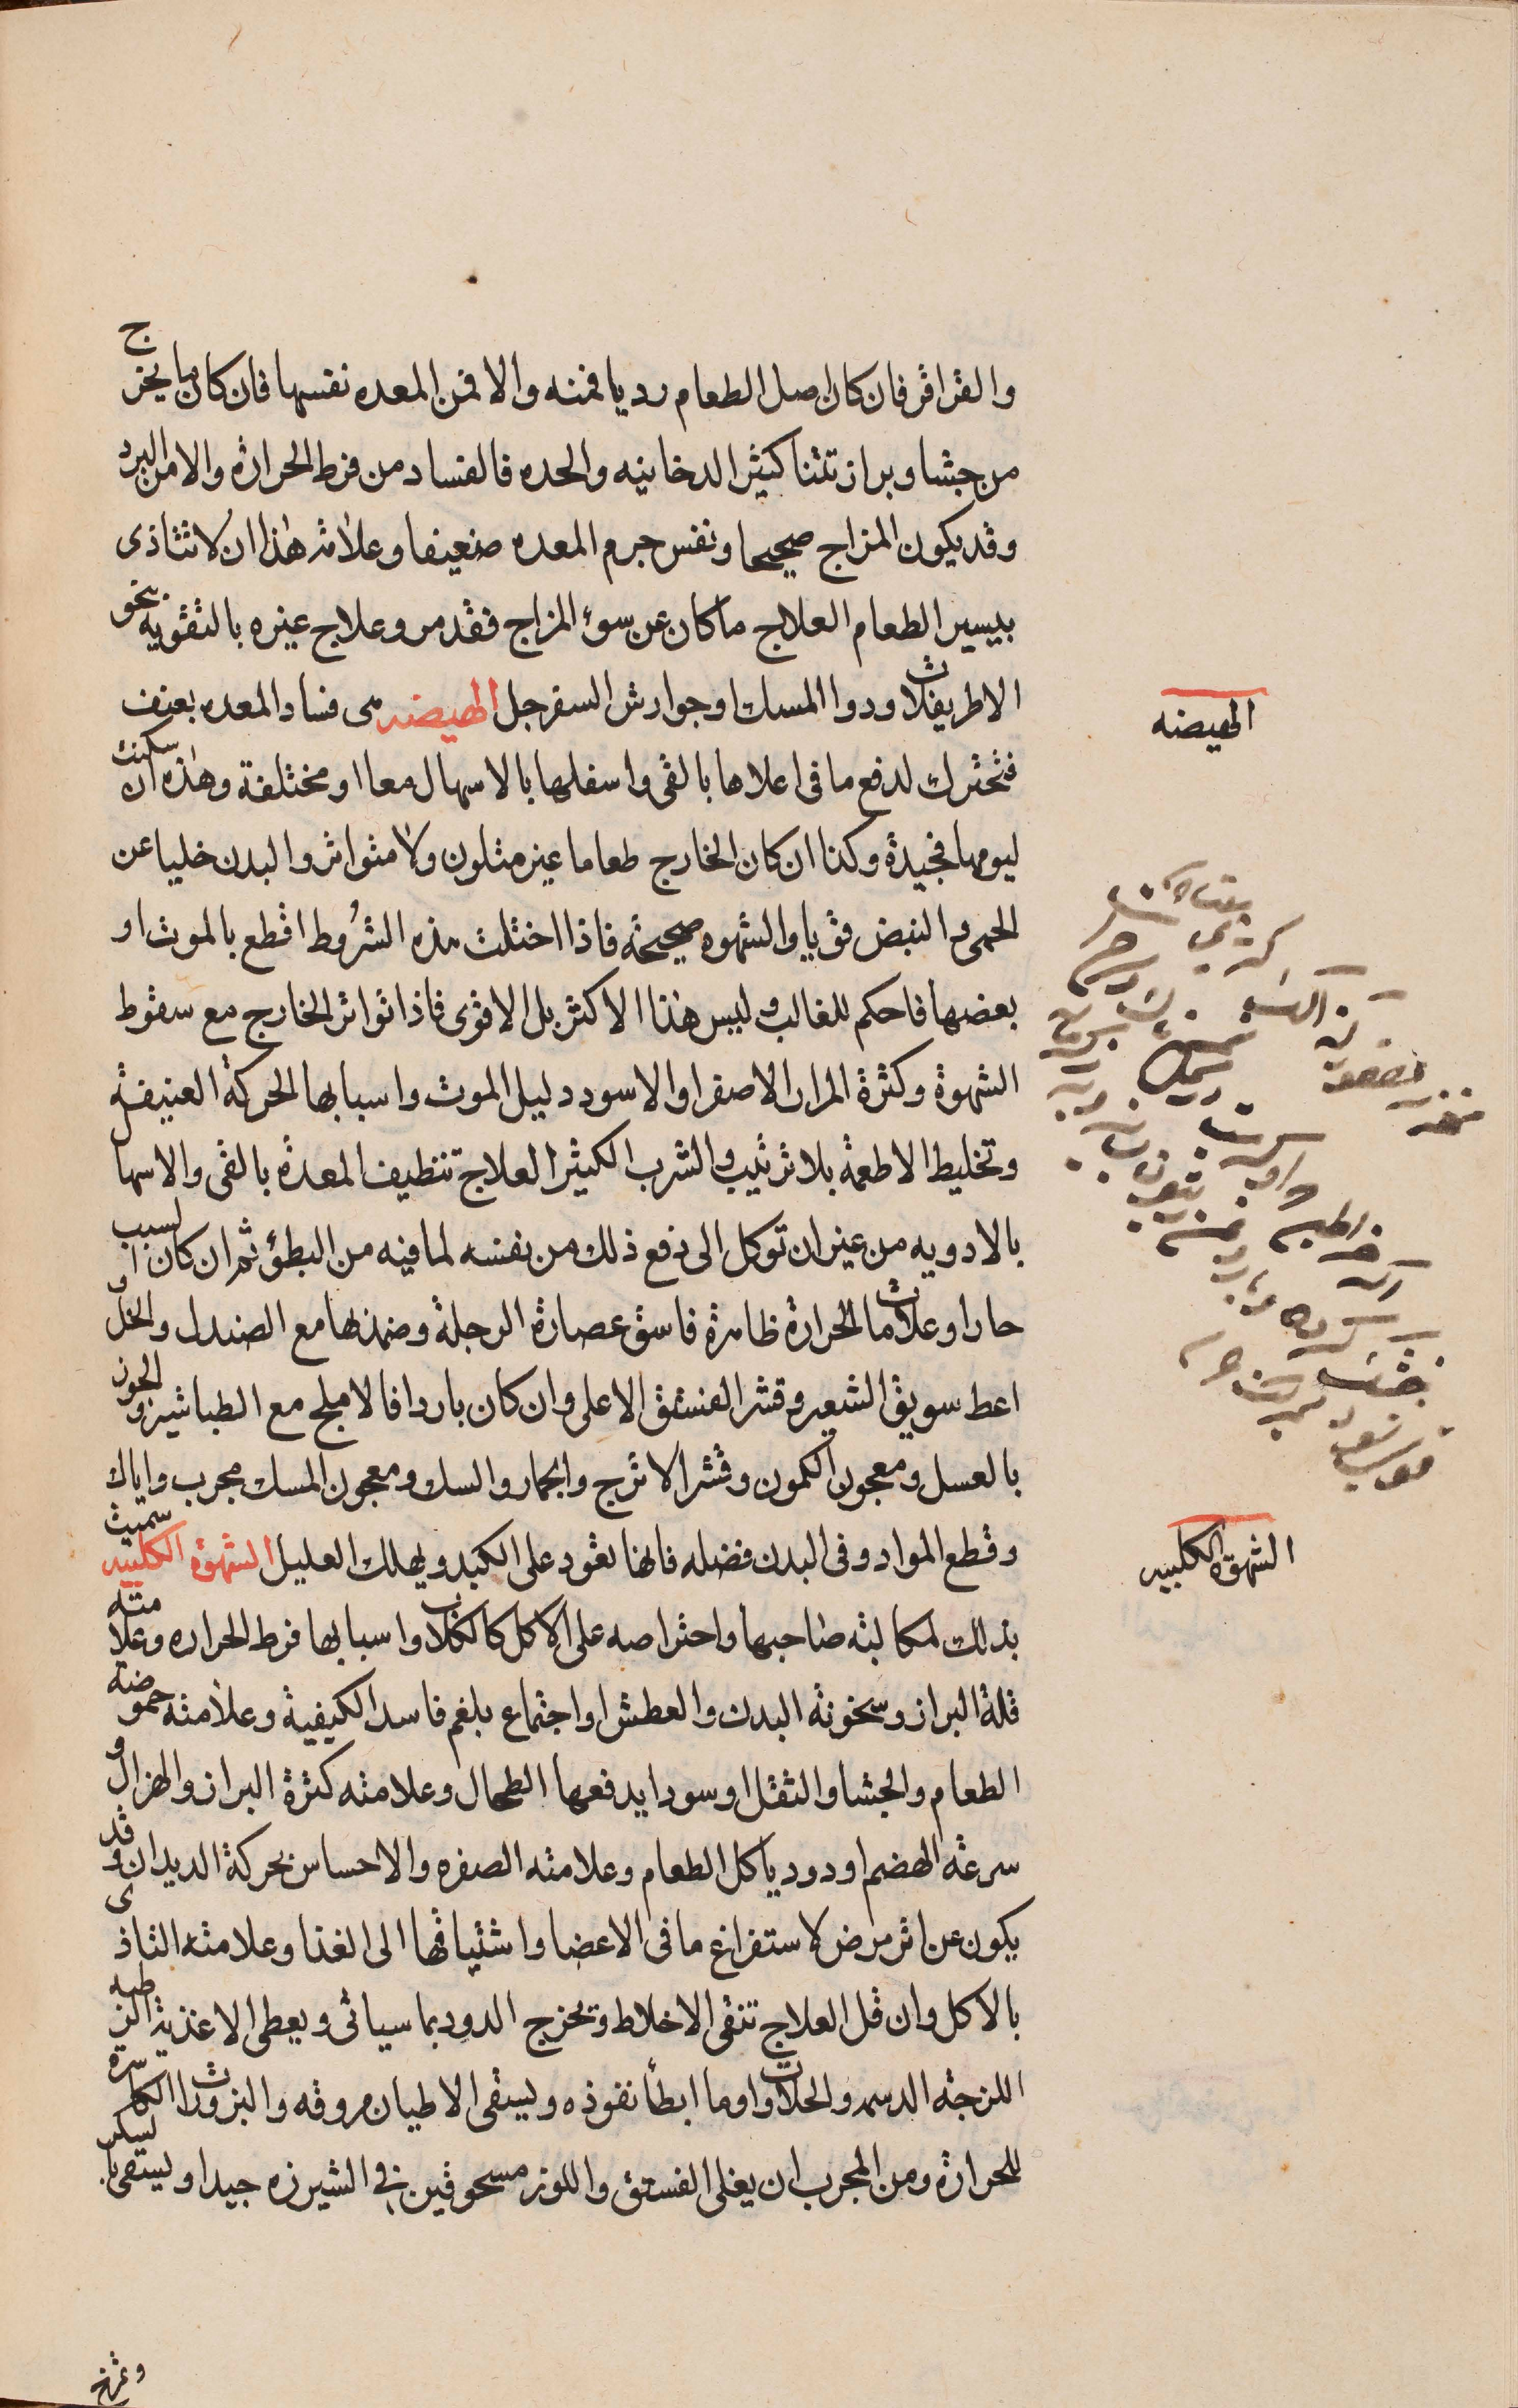 والقراقر فان كان اصل الطعام رديا فمنه والا فمن المعده نفسها فان كان ما يخرج
من جشا وبراز نتنا كثير الدخانيه والحده فالفساد من فرط الحرارة والا من البرد
وقد يكون المزاج صحيحا ونفس جرم المعده ضعيفا وعلامة هذا ان لا تتاذى
بيسير الطعام العلاج ما كان عن سوء المزاج فقد مر وعلاج غيره بالتقويه بنحو
الاطريفلات ودوا المسك وجوارش السفرجل الهيضه هى فساد المعده بعنف
فتتحرك لدفع ما فى اعلاها بالقى واسفلها بالاسهال معا او مختلفة وهذه ان سكنت
ليومها فجيدة وكذا ان كان الخارج طعاما غير متلون ولا متواتر والبدن خليا عن
الحمى والنبض قويا والشهوه صحيحة فاذا اختلت هذه الشروط اقطع بالموت او
بعضها فاحكم للغالب وليس هذا الاكثر بل الاقوى فاذا تواتر الخارج مع سقوط
الشهوة وكثرة المرار الاصفر او الاسود دليل الموت واسبابها الحركة العنيفة
وتخليط الاطعمة بلا ترتيب والشرب الكثير العلاج تنظيف المعدة بالقى والاسها
بالادويه من غير ان توكل الى دفع ذلك من نفسه لما فيه من البطؤ ثم ان كان السبب
حارا وعلامات الحرارة ظاهرة فاسق عصارة الرجلة وضمد بها مع الصندل والخل او
اعط سويق الشعير وقشر الفستق الاعلى وان كان باردا فالاملج مع الطباشير والجوز
بالعسل ومعجون الكمون وقشر الاترج والجمار والسك ومعجون المسك مجرب واياك
وقطع المواد وفى البدن فضله فانها تعود على الكبد ويهلك العليل الشهوة الكلبيه سميت
بذلك لمكالبة صاحبها واحتراصه على الاكل كالكلاب واسبابها فرط الحراره وعلامته
قلة البراز وسخونة البدن والعطش او اجتماع بلغم فاسد الكيفية وعلامته حموضة
الطعام والجشا والثقل او سودا يدفعها الطحال وعلامته كثرة البراز والهزال و
سرعة الهضم او دود ياكل الطعام وعلامته الصفره والاحساس بحركة الديدان وقد
يكون عن اثر مرض لاستفراغ ما فى الاعضا واشتياقها الى الغذا وعلامته التاذى
بالاكل وان قل العلاج تنقى الاخلاط وتخرج الدود بما سيأتى ويعطى الاغذية الرطبه
اللزجة الدسمه والحلاوات وما ابطأ نفوذه ويسقى الاطيان مروقه والبزورات الكاسرة
للحرارة ومن المجرب ان يغلى الفستق واللوز مسحوقين فى الشيرزه جيدا ويسقى بالسكر
وتمرخ
الهيضه
الشهوة الكلبيه